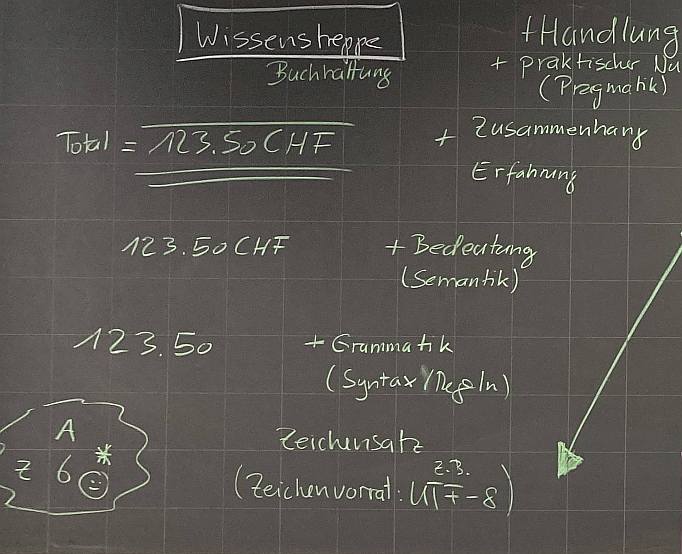 Wissenstreppe
Buchhaltung
+ Handlung
+ praktischer Nu
(Pragmatik)
Total = 123.50 CHF
+ Zusammenhang
Erfahrung
123.50 CHF
+ Bedeutung
(Semantik)
123.50
+ Grammatik
(Syntax/Regeln)
A
z 6 *
Zeichensatz
z.B.
(Zeichenvorrat: UTF-8)